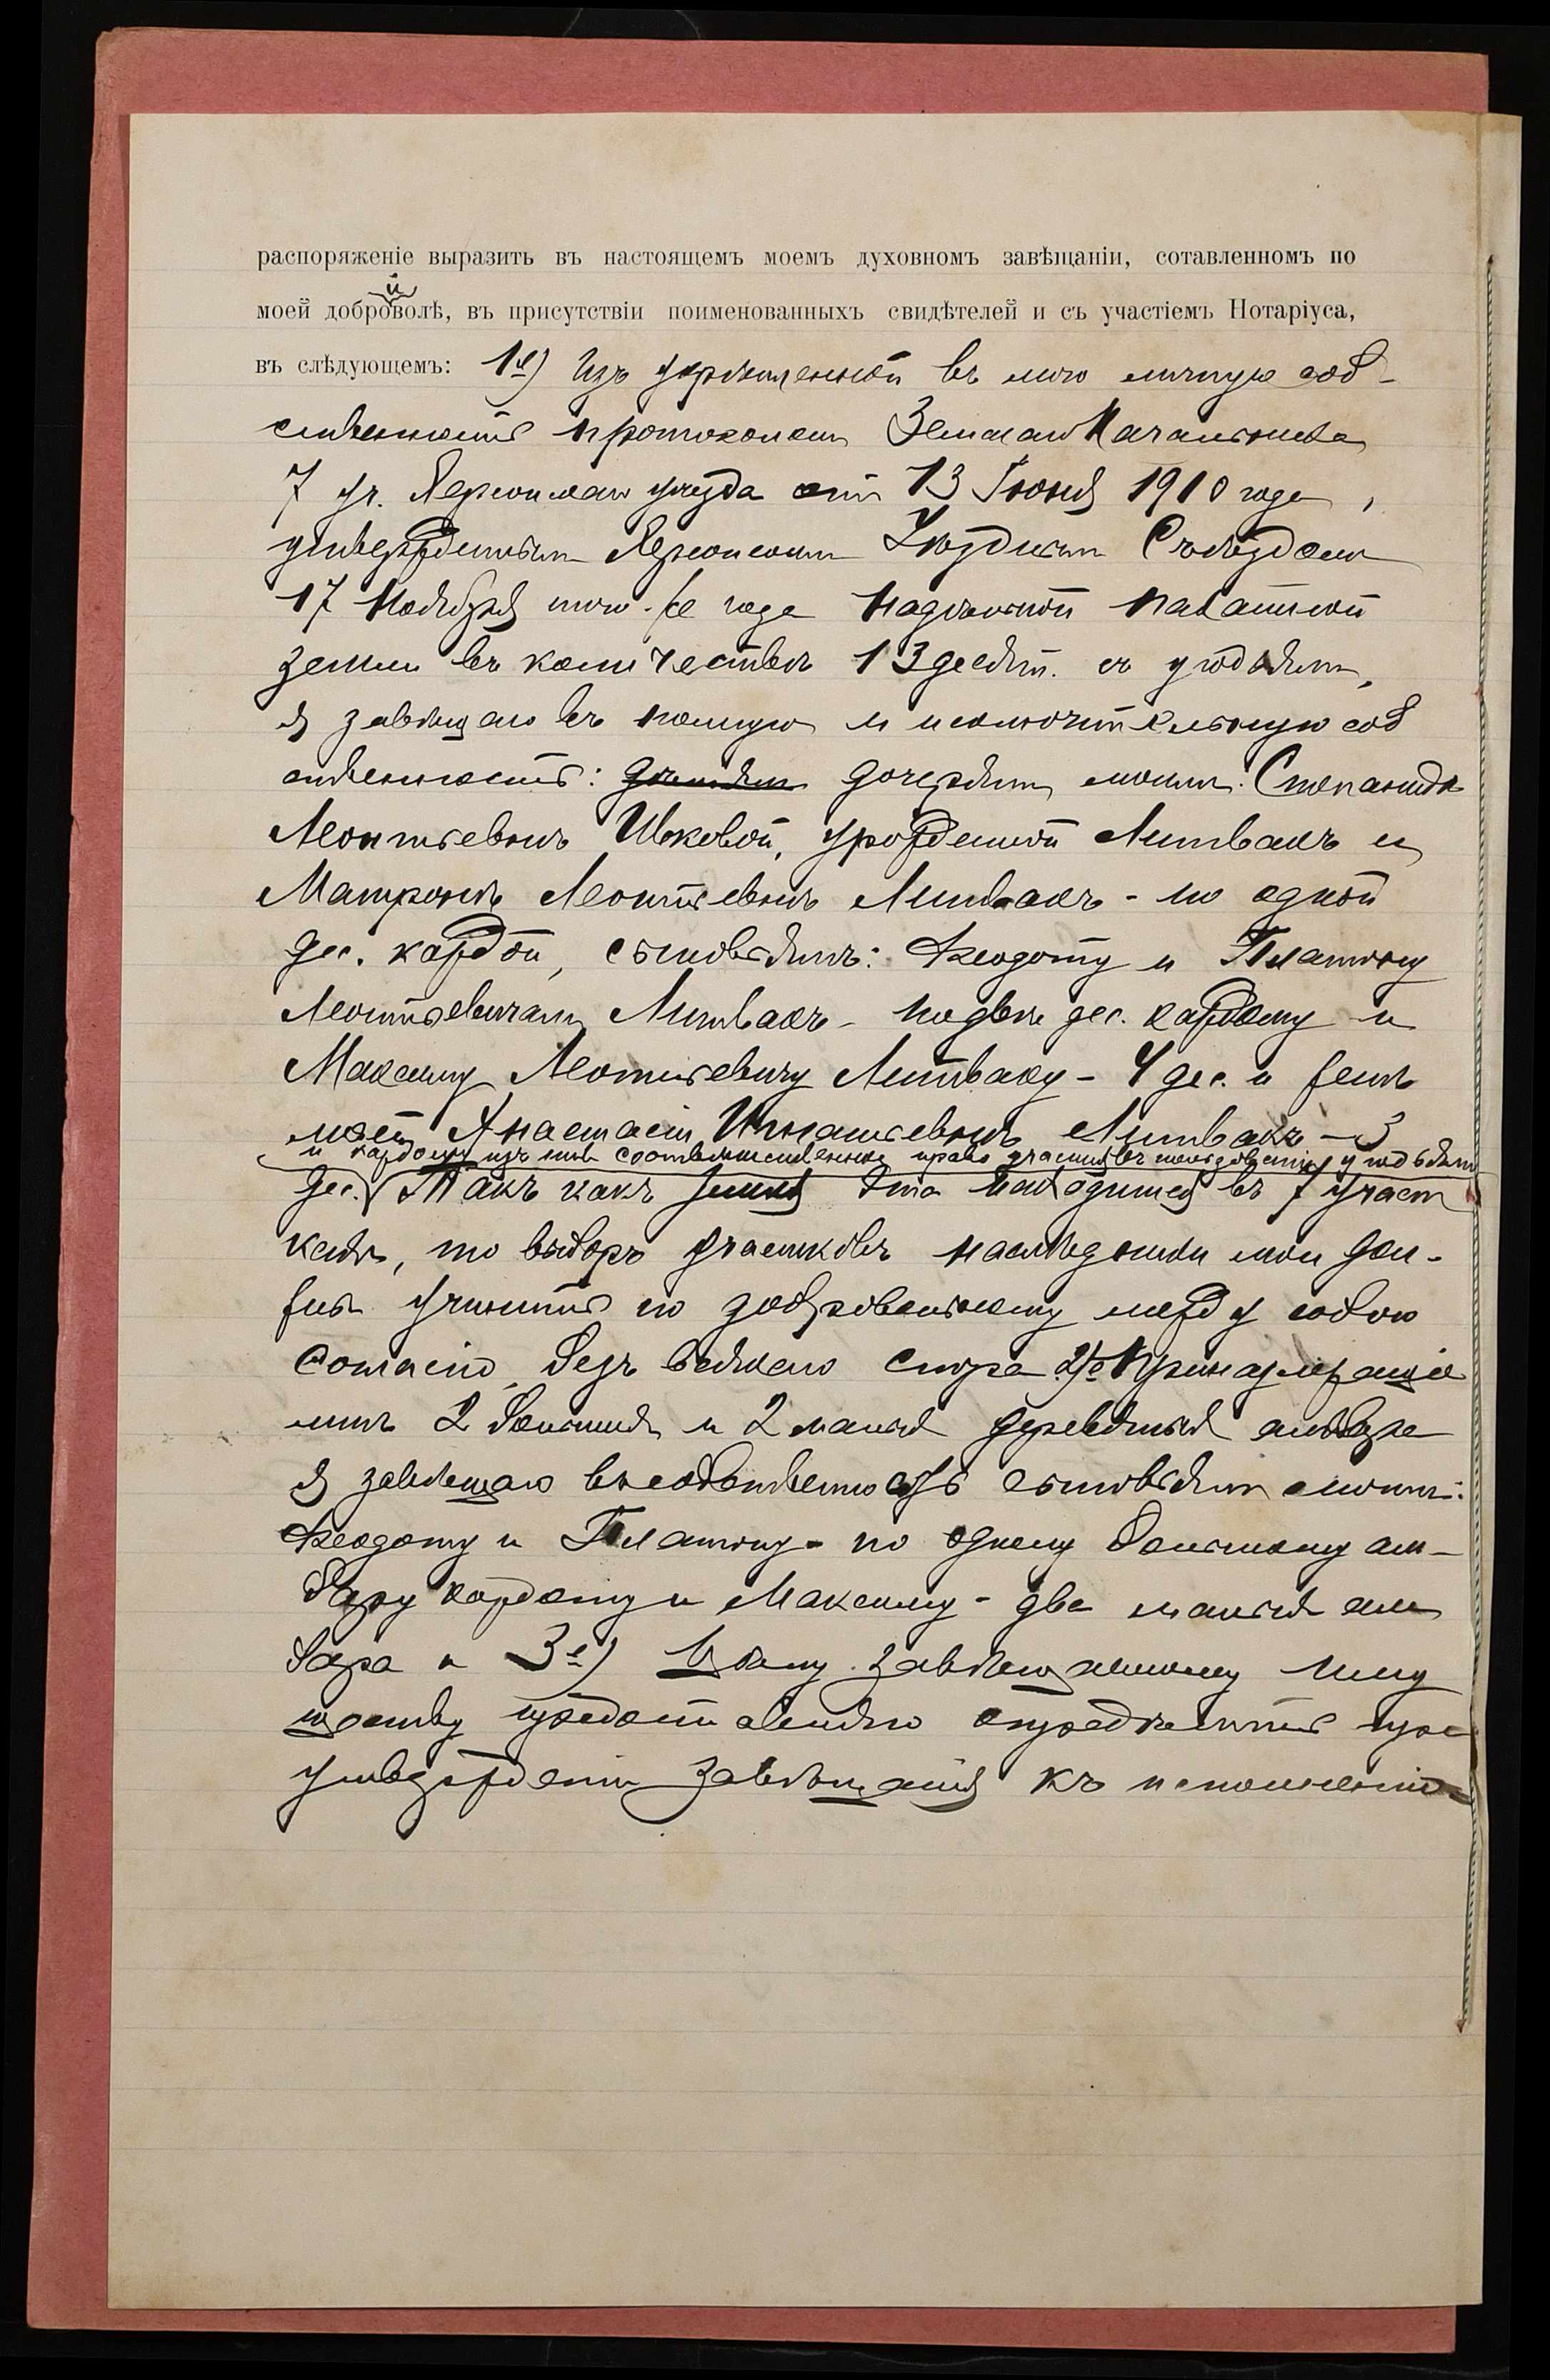 распоряженіе выразить въ настоящемъ моемъ духовномъ завѣщаніи, сотавленномъ по
й
моей доброволѣ, въ присутствіи поименованныхъ свидѣтелей и съ участіемъ Нотаріуса,
въ слѣдующемъ: 1е) Изъ укрѣпленной въ мою личную соб-
ственность протоколомъ Земскаго Начальника
7 уч. Херсонскаго уѣзда отъ 13 Іюня 1910 года,
утвержденнымъ Херсонскимъ Уѣзднымъ Съѣздомъ
17 Ноября того-же года надѣльной пахатной
земли въ количествѣ 13 десят. съ угодьями,
я завѣщаю въ полную и исключительную соб
ственность: дочерямъ моимъ: Степанидѣ
Леонтьевнѣ урожденной Литвакъ и
Матронѣ Леонтьевнѣ Литвакъ - по одной
дес. каждой, сыновьямъ: Феодоту и Платону
Леонтьевичамъ Литвакъ - по двѣ дес. каждому и
Максиму Леонтьевичу Литваку - 4 дес. и женѣ
моей Анастасіи Игнатьевнѣ Литвакъ - 3
и каждому изъ нихъ соотвѣтственное право участія въ пользованіи угодьями
дес. Такъ какъ земля эта находится въ 7 участ
кахъ, то выборъ участковъ наслѣдники мои дол-
жны учинить по добровольному между собою
согласію безъ всякаго спора. 2)е Принадлежащіе
мнѣ 2 большихъ и 2 малыхъ деревянныхъ амбара
я завѣщаю въ собственность сыновьямъ моимъ:
Феодоту и Платону - по одному большому ам-
бару каждому и Максиму - два малыхъ ам
бара и 3е) Цѣну завѣщанному иму
ществу предоставляю опредѣлить при
утвержденіи завѣщанія къ исполненію